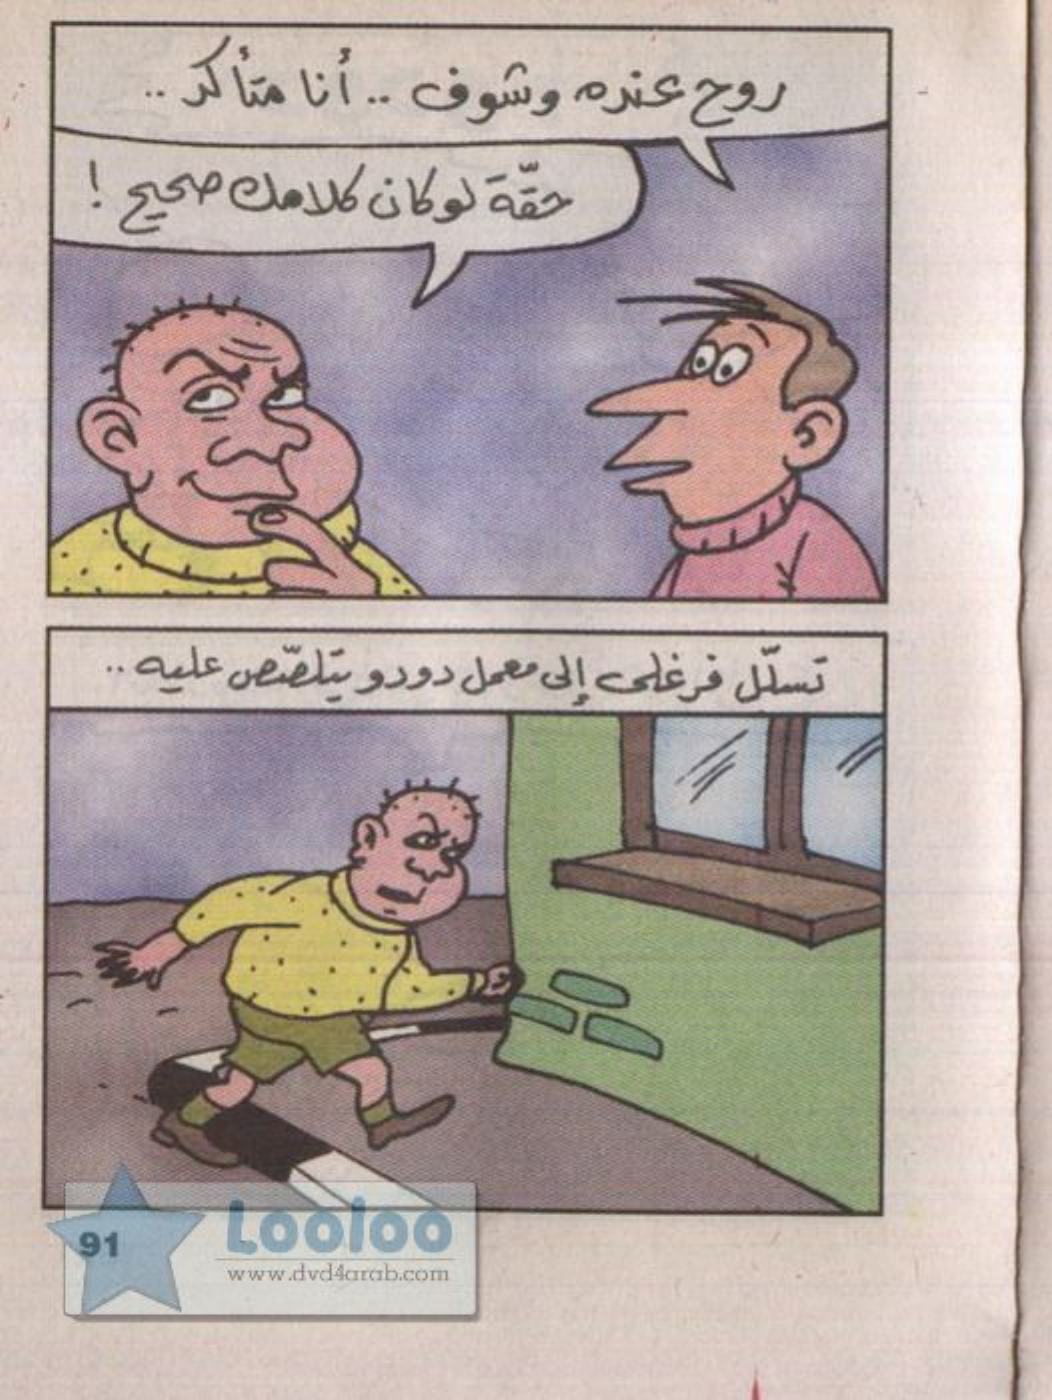 روح عنده وشوف .. أنا متأكد ..
حقّة لو كان كلامك صحيح !
تسلّل فرغلى إلى معمل دودو يتلصّص عليه ..
91
Looloo
www.dvd4arab.com